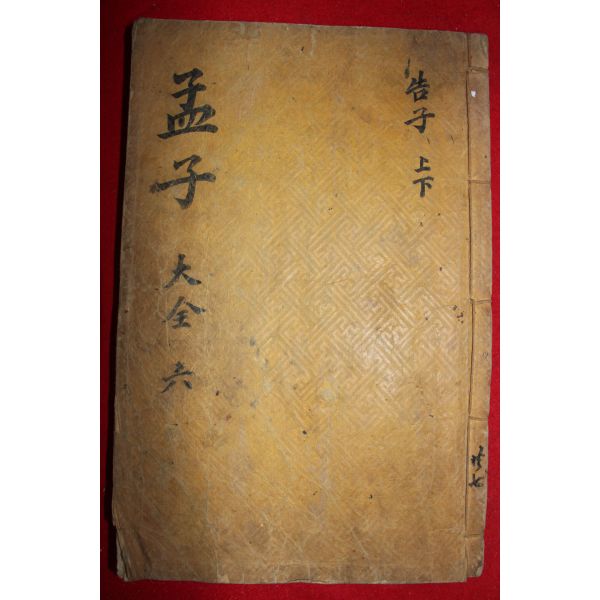 孟子 大全 六
告子 上下
共七